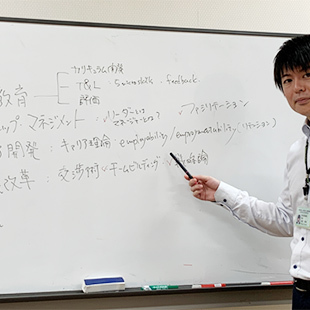 カリキュラム開発
教育 T&L : feedback.
評価
ップ・マネジメント : リーダーとは マネジャーとは? ファシリテーション
開発 : キャリア理論 employability /
改革 : 交渉術 チームビルディング 理論